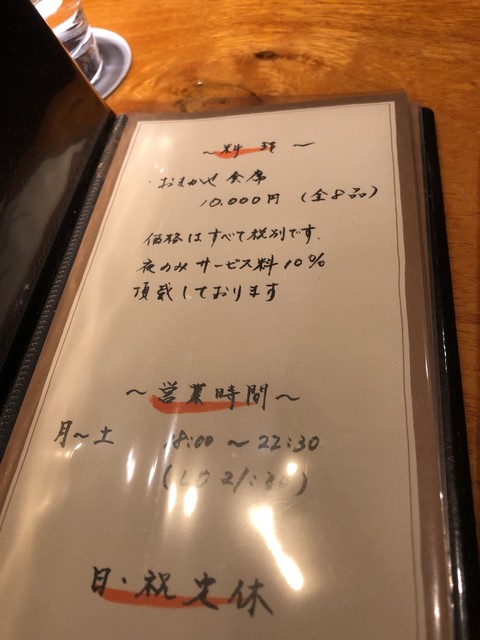 ～料理～
・おまかせ会席
10.000円 (全8品)
価格はすべて税別です.
夜のみサービス料10%
頂戴しております
～営業時間～
月～土 18:00～22:30
(LO 21:30)
日・祝定休